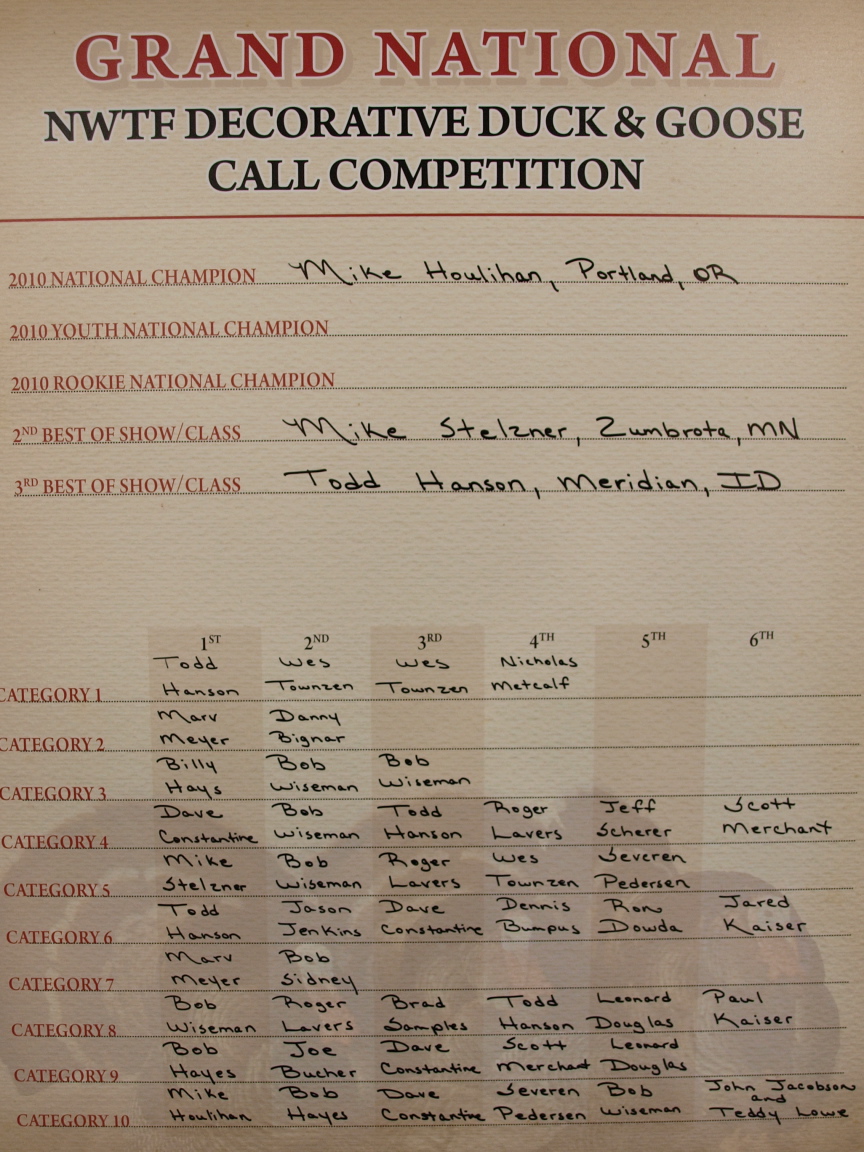 GRAND NATIONAL
NWTF DECORATIVE DUCK & GOOSE
CALL COMPETITION
2010 NATIONAL CHAMPION Mike Houlihan, Portland, OR
2010 YOUTH NATIONAL CHAMPION
2010 ROOKIE NATIONAL CHAMPION
2ND BEST OF SHOW/CLASS Mike Stelzner, Zumbrota, MN
3RD BEST OF SHOW/CLASS Todd Hanson, Meridian, ID
1ST 2ND 3RD 4TH 5TH 6TH
Todd Wes Wes Nicholas
CATEGORY 1 Hanson Townzen Townzen Metcalf
Marv Danny
CATEGORY 2 Meyer Bignar
Billy Bob Bob
CATEGORY 3 Hays Wiseman Wiseman
Dave Bob Todd Roger Jeff Scott
CATEGORY 4 Constantine Wiseman Hanson Lavers Scherer Merchant
Mike Bob Roger Wes Severen
CATEGORY 5 Stelzner Wiseman Lavers Townzen Pedersen
Todd Jason Dave Dennis Ron Jared
CATEGORY 6 Hanson Jenkins Constantine Bumpus Dowda Kaiser
Marv Bob
CATEGORY 7 Meyer Sidney
Bob Roger Brad Todd Leonard Paul
CATEGORY 8 Wiseman Lavers Samples Hanson Douglas Kaiser
Bob Joe Dave Scott Leonard
CATEGORY 9 Hayes Bucher Constantine Merchant Douglas
Mike Bob Dave Severen Bob John Jacobson
and
CATEGORY 10 Houlihan Hayes Constantine Pedersen Wiseman Teddy Lowe